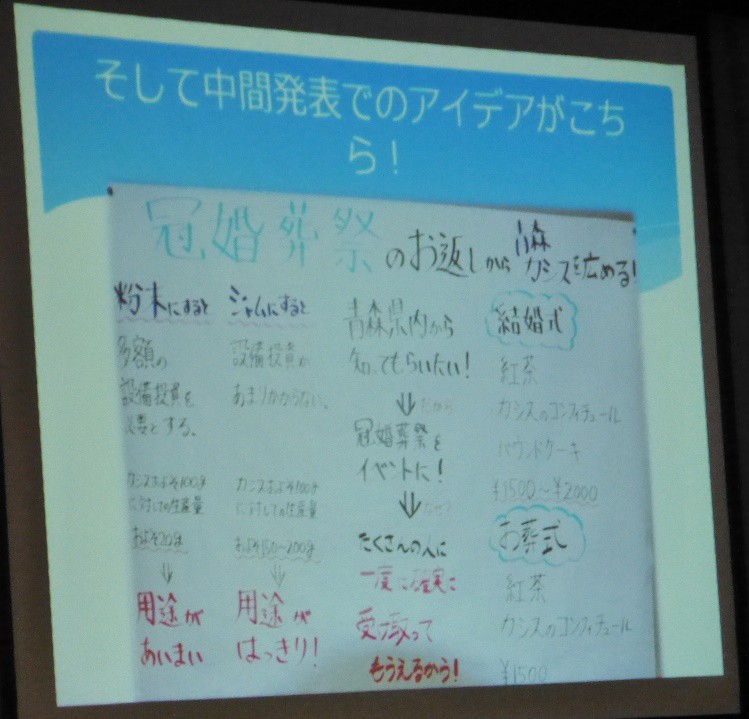 そして中間発表でのアイデアがこち
ら！
冠婚葬祭のお返しから青森カシスを広める！
粉末にすると
多額の
設備投資を
必要とする。
カシスおよそ100gに対しての生産量
およそ20g
↓
用途が
あいまい
ジャムにすると
設備投資が
あまりかからない。
カシスおよそ100g
に対しての生産量
およそ150~200g
↓
用途が
はっきり！
青森県内から
知ってもらいたい！
↓だから
冠婚葬祭を
イベントに！
↓なぜ?
たくさんの人に
一度に確実に
受け取って
もらえるから！
結婚式
紅茶
カシスのコンフィチュール
パウンドケーキ
¥1500~¥2000
お葬式
紅茶
カシスのコンフィチュール
¥1500